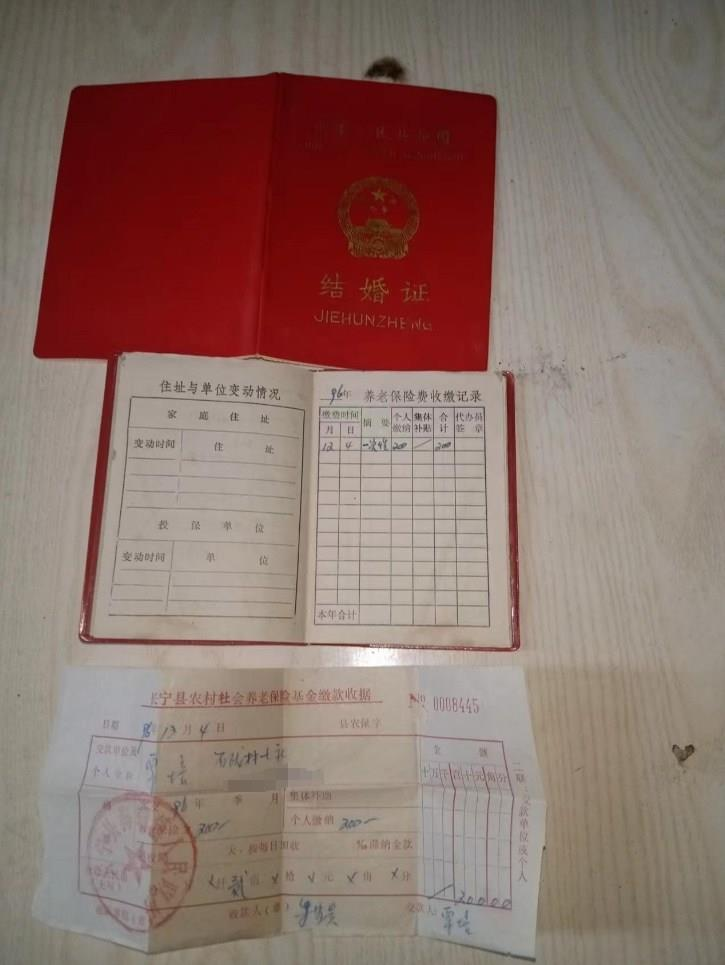 中华人民共和国
结婚证
JIEHUNZHENG
住址与单位变动情况
家庭住址
变动时间 住址
投保单位
变动时间 单位
96年 养老保险费收缴记录
缴费时间 摘要 个人缴纳 集体补贴 合计 代办员签章
月 日
12 4 一次性 200 200
本年合计
长宁县农村社会养老保险基金缴款收据
No 0008445
日期 96年12月4日 县农保字
交款单位及个人全称
金额
十万千百十元角分
96年 季 月 集体补助
200 个人缴纳 200
天,按每日加收 ‰滞纳金款
仟贰佰 拾 元 角 分
20000
收款人(章) 交款人
二联:交款单位或个人